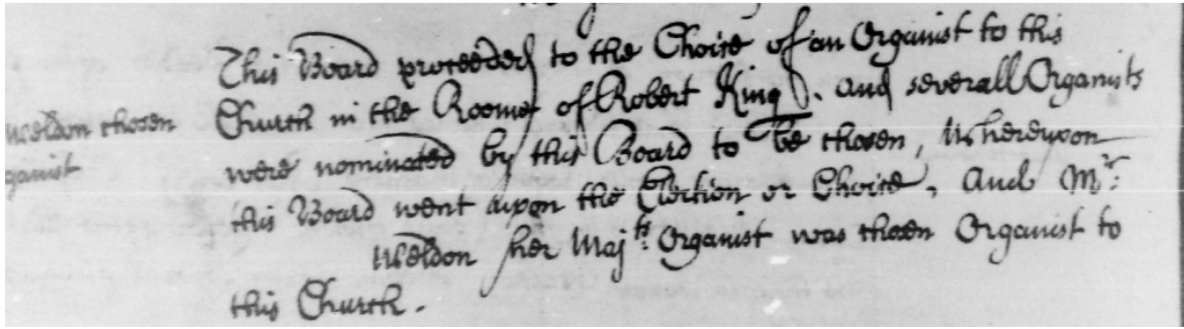 This Board proceeded to the Choice of an Organist to this
Church in the Roome of Robert King. And severall Organists
Weldon chosen
ganist
were nominated by this Board to be chosen, Whereupon
this Board went upon the Election or Choice, And Mr:
Weldon her Maj.ts Organist was chosen Organist to
this Church.